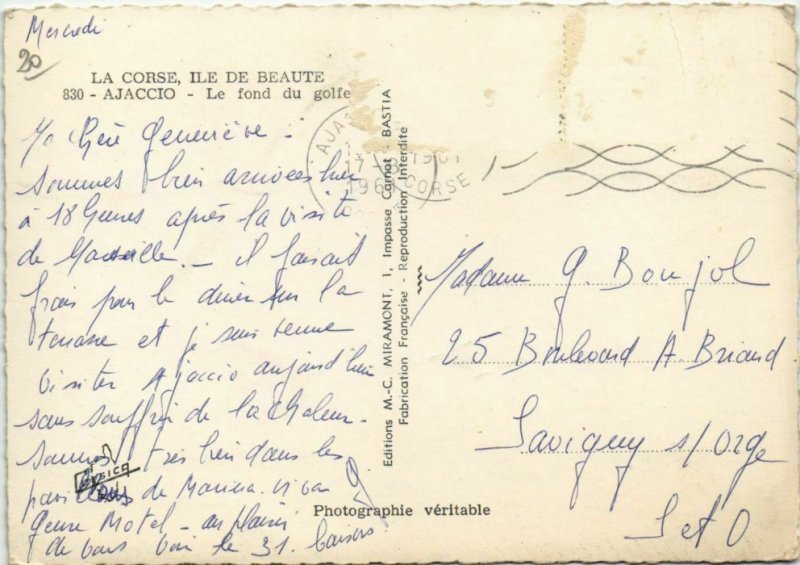 Mercredi
20
LA CORSE, ILE DE BEAUTE
830 - AJACCIO - Le fond du golfe
Ma chère Geneviève -
sommes bien arrivées hier
à 18 heures après la visite
de Marseille. - il faisait
frais pour le diner sur la
terrasse et je suis venue
visiter Ajaccio aujourd'hui
sans souffrir de la chaleur -
sommes très bien dans les
pavillons de Marina Viva
genre Motel - au plaisir
de vous voir le 31. baisers
CORSICA
G
Editions M.-C. MIRAMONT, 1, Impasse Carnot - BASTIA
Fabrication Française - Reproduction Interdite
Photographie véritable
AJAC
17-8 1961
1961 CORSE
Madame G. Boujol
25 Boulevard A. Briand
Savigny s/Orge
S et O